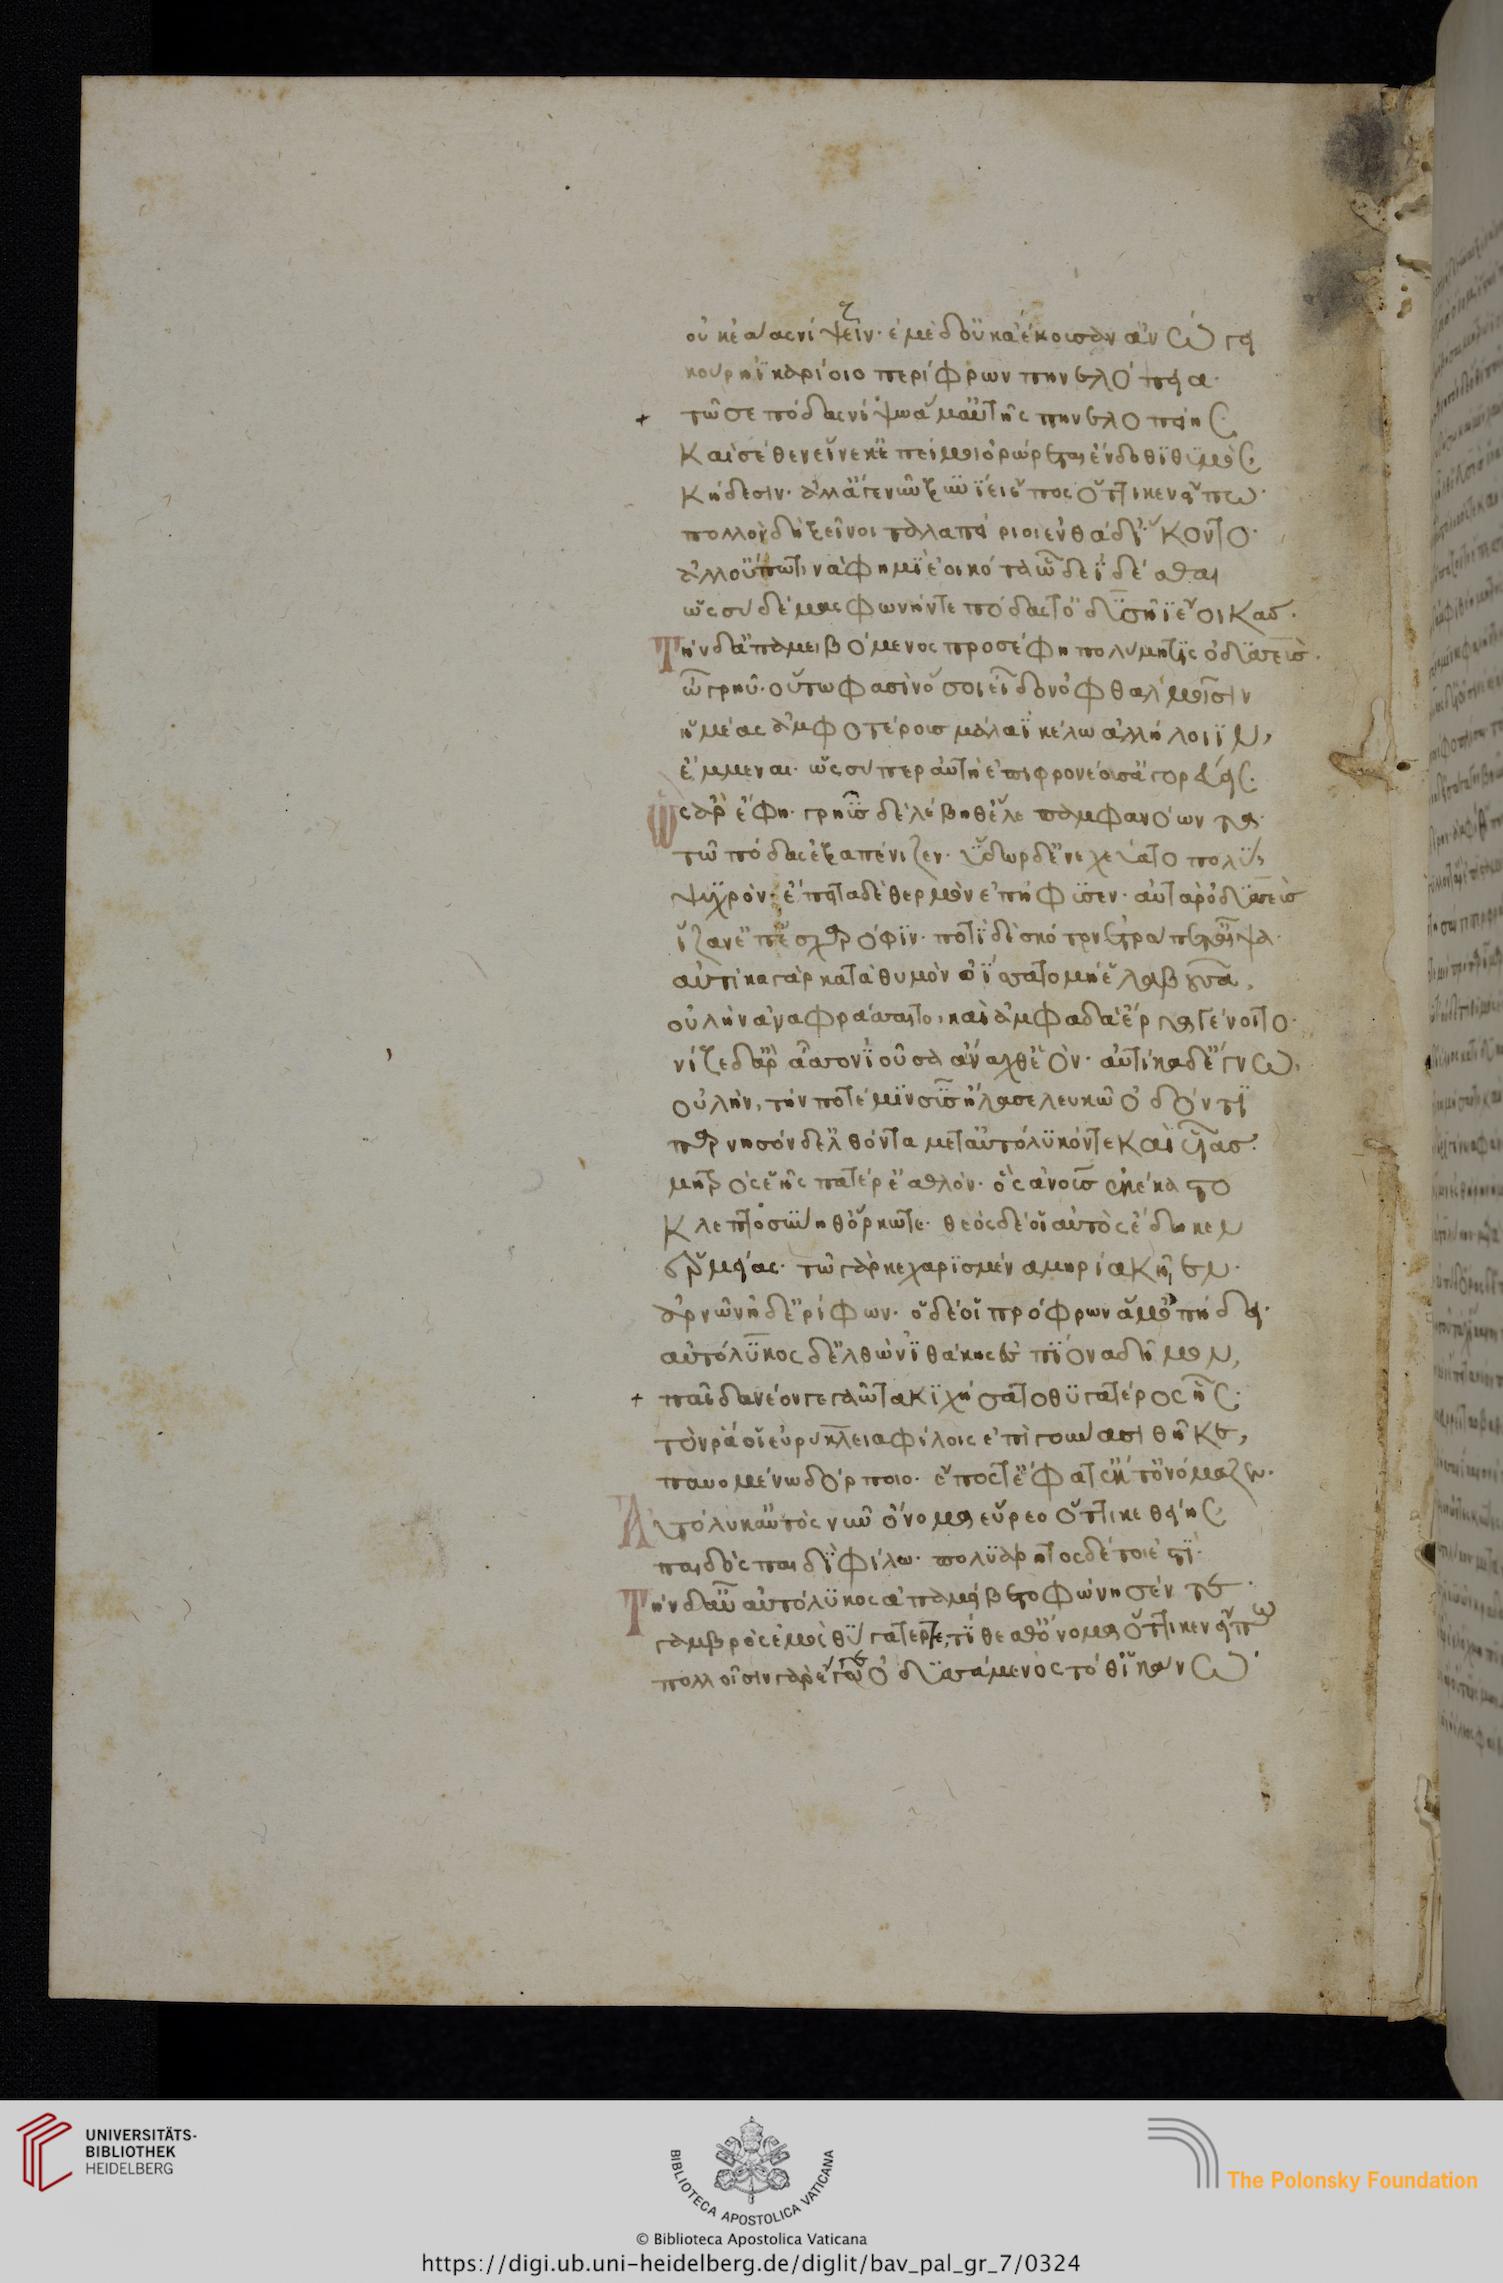 οὐκ ἐάας νίζειν· ἐμὲ δ' οὐκ ἀέκουσαν ἀνώγει
κούρη ἰκαρίοιο περίφρων πηνελόπεια·
τῶ σε πόδας νίψω ἅμα τ' αὐτῆς πηνελοπείης
καὶ σέθεν εἵνεκ' ἐπεί μοι ὀρώρεται ἔνδοθι θυμὸς
κήδεσιν· ἀλλ' ἄγε νῦν ξυνίει ἔπος ὅττι κεν εἴπω·
πολλοὶ δὴ ξεῖνοι ταλαπείριοι ἐνθάδ' ἵκοντο·
ἀλλ' οὔπω τινά φημι ἐοικότα ὧδε ἰδέσθαι
ὡς σὺ δέμας φωνήν τε πόδας τ' ὀδυσῆϊ ἔοικας·
Τὴν δ' ἀπαμειβόμενος προσέφη πολύμητις ὀδυσσεύς·
ὦ γρηῦ· οὕτω φασὶν ὅσοι εἶδον ὀφθαλμοῖσιν
ἡμέας ἀμφοτέροις μάλα ἰκέλω ἀλλήλοιϊν,
ἔμμεναι· ὡς σύ περ αὐτὴ ἐπιφρονέουσ' ἀγορεύεις·
Ὣς ἄρ' ἔφη· γρηῢς δὲ λέβηθ' ἕλε παμφανόωντα·
τῶ πόδας ἐξαπένιζεν· ὕδωρ δ' ἐνεχεύατο πολύ,
ψυχρόν· ἔπειτα δὲ θερμὸν ἐπήφυσεν· αὐτὰρ ὀδυσσεὺς
ἷζεν ἐπ' ἐσχαρόφιν· ποτὶ δὲ σκότον ἐτράπετ' αἶψα·
αὐτίκα γὰρ κατὰ θυμὸν ὀΐσατο μή ἑ λαβοῦσα,
οὐλὴν ἀναφράσσαιτο, καὶ ἀμφαδὰ ἔργα γένοιτο·
νίζε δ' ἄρ' ἆσσον ἰοῦσα ἄναχθ' ἑόν· αὐτίκα δ' ἔγνω,
οὐλήν, τήν ποτέ μιν σῦς ἤλασε λευκῶ ὀδόντι
παρνησόνδ' ἐλθόντα μετ' αὐτόλυκόν τε καὶ υἷας·
μητρὸς ἑῆς πατέρ' ἐσθλόν· ὃς ἀνθρώπους ἐκέκαστο
κλεπτοσύνη θ' ὅρκω τε· θεὸς δέ οἱ αὐτὸς ἔδωκεν
ἑρμείας· τῶ γὰρ κεχαρισμένα μηρία καῖεν·
ἀρνῶν ἠδ' ἐρίφων· ὁ δέ οἱ πρόφρων ἅμ' ὀπήδει·
αὐτόλυκος δ' ἐλθὼν ἰθάκης ἐς πίονα δῆμον,
παῖδα νέον γεγαῶτα κιχήσατο θυγατέρος ἧς·
τόν ῥά οἱ εὐρύκλεια φίλοις ἐπὶ γούνασι θῆκε,
παυομένω δόρποιο· ἔπος τ' ἔφατ' ἔκ τ' ὀνόμαζεν·
Αὐτόλυκ' αὐτὸς νῦν ὄνομα εὕρεο ὅττι κε θείης
παιδὸς παιδὶ φίλω· πολυάρητος δέ τοι ἐστί·
Τὴν δ' αὖ αὐτόλυκος ἀπαμείβετο φώνησέν τε·
γαμβρὸς ἐμὸς θυγάτερ τε, τίθεσθ' ὄνομα ὅττι κεν εἴπω
πολλοῖσιν γὰρ ἔγωγε ὀδυσσάμενος τόδ' ἱκάνω
UNIVERSITÄTS-
BIBLIOTHEK
HEIDELBERG
BIBLIOTECA APOSTOLICA VATICANA
The Polonsky Foundation
© Biblioteca Apostolica Vaticana
https://digi.ub.uni-heidelberg.de/diglit/bav_pal_gr_7/0324